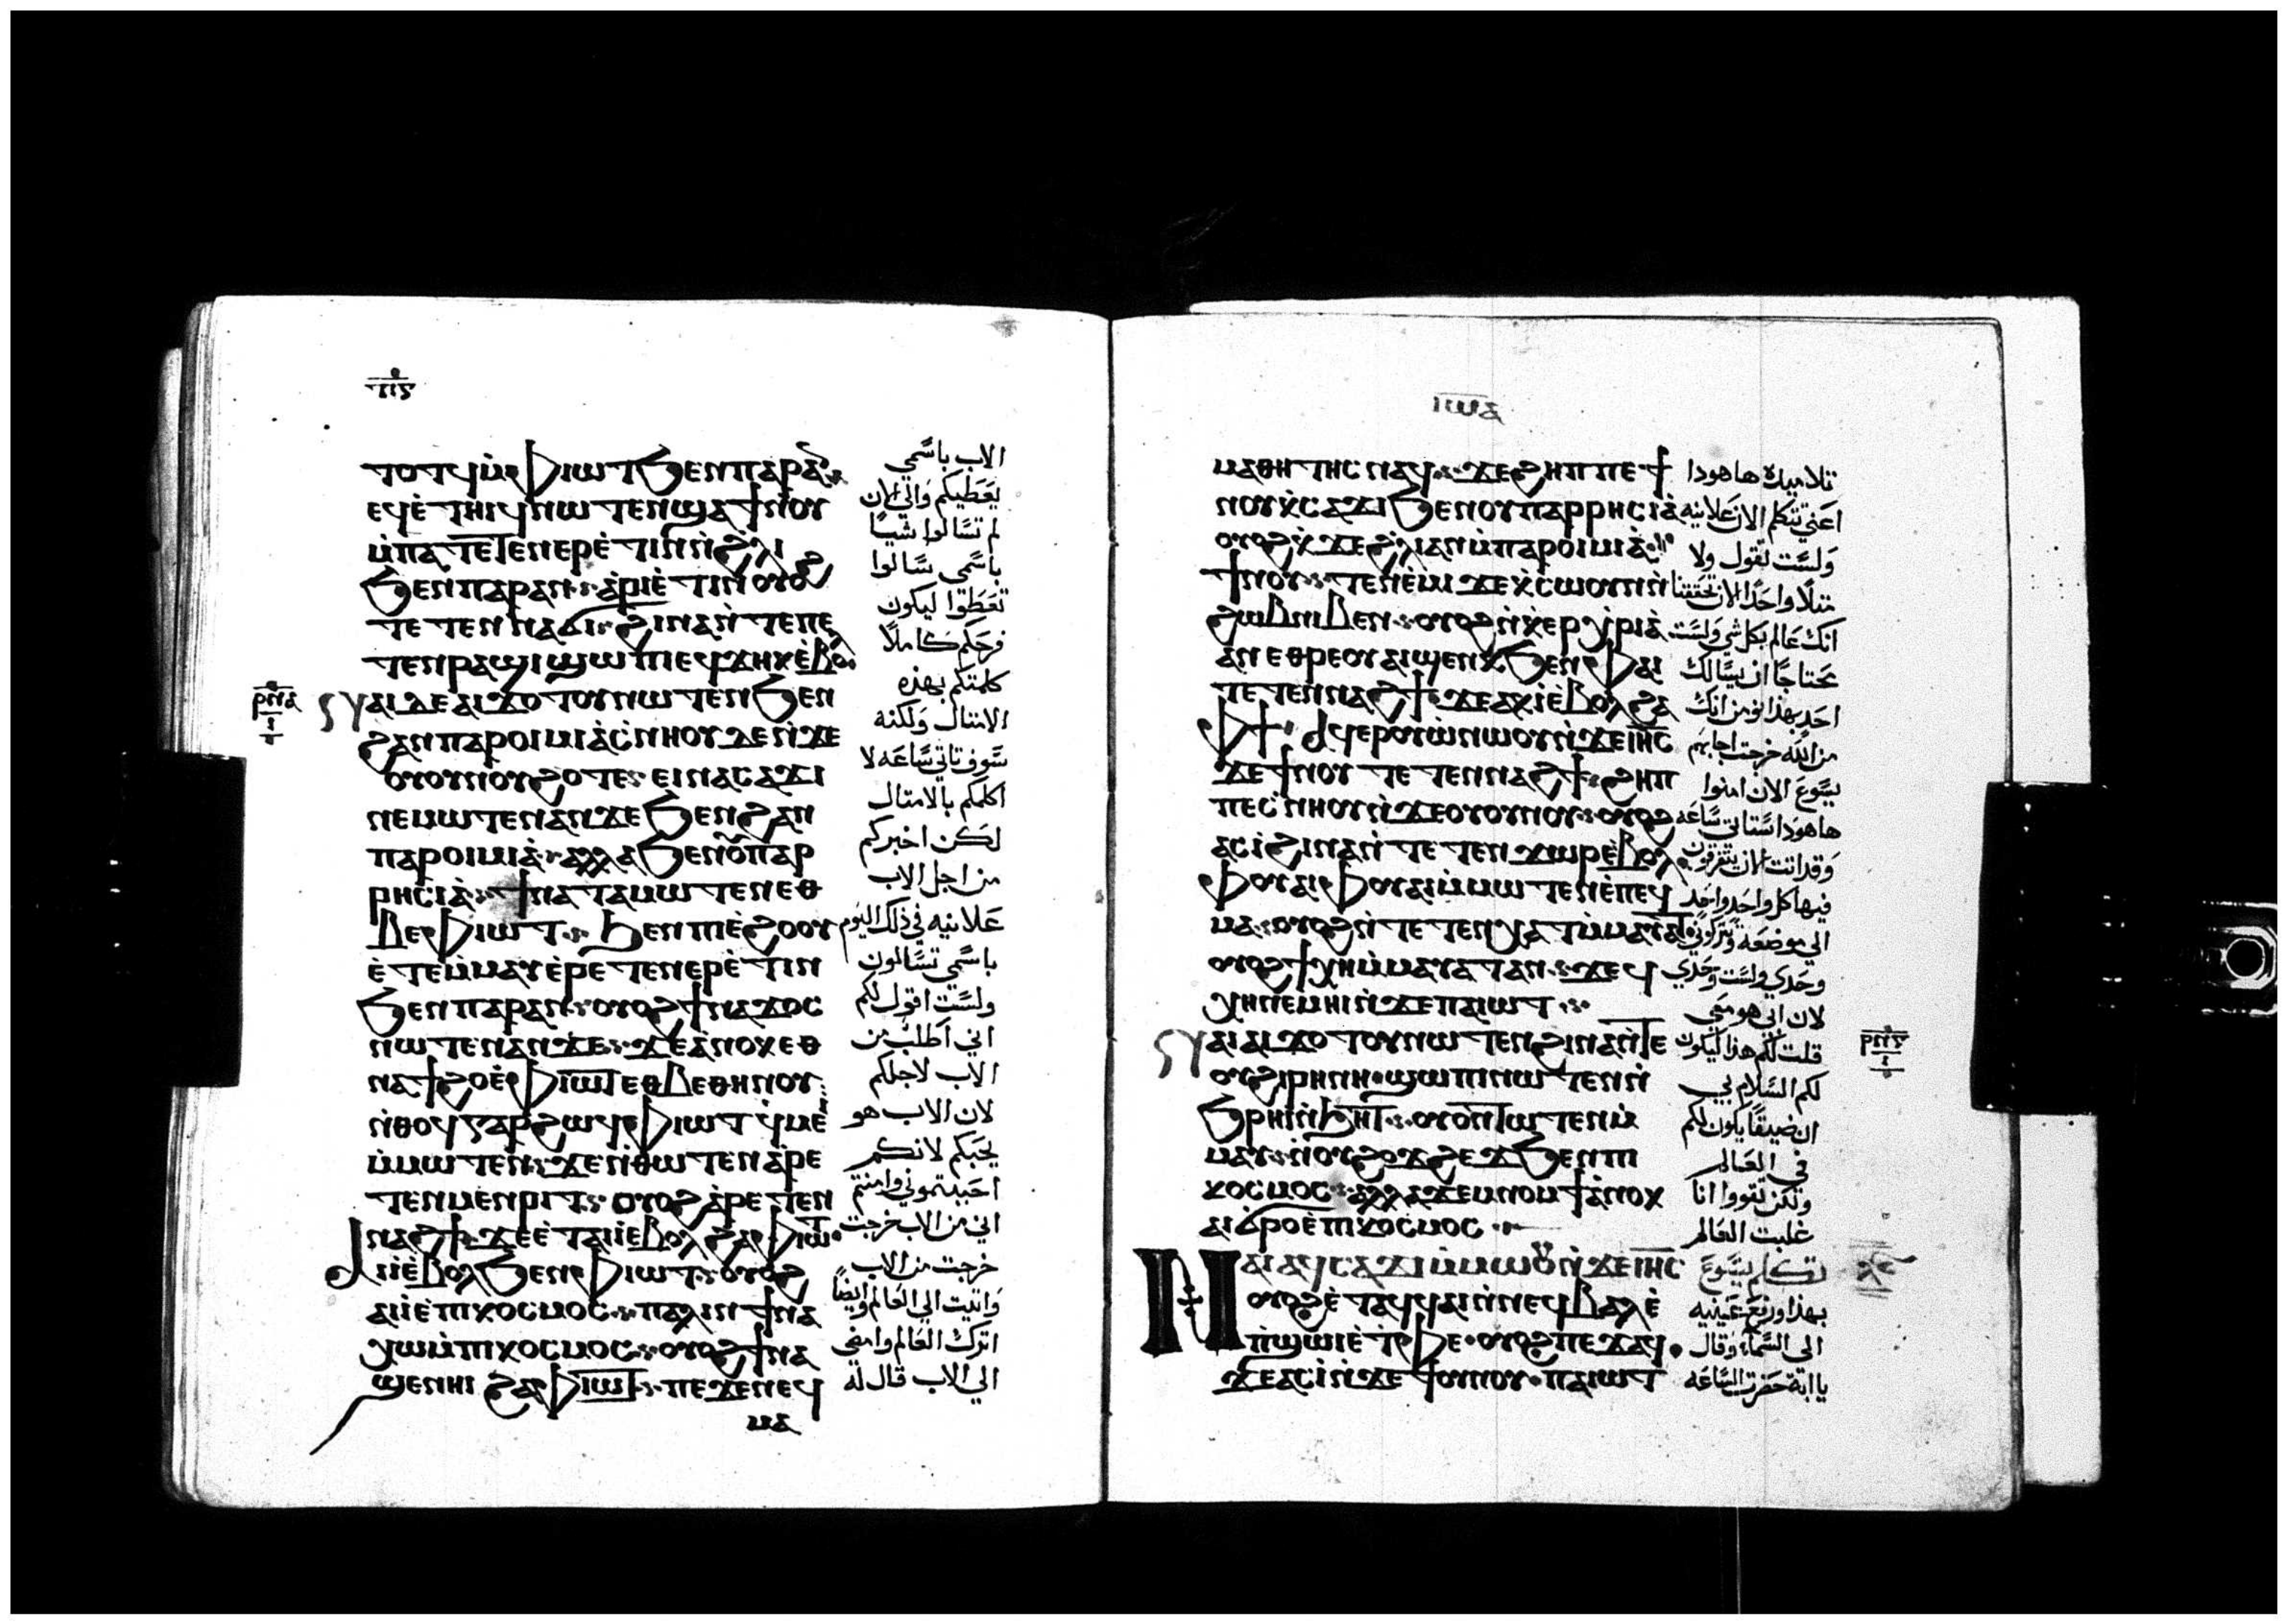 ⲧⲟⲧϥ ⲙ̇ⲫⲓⲱⲧ ϧⲉⲛ ⲡⲁⲣⲁⲛ
ⲉϥⲉ̀ⲧⲏⲓϥ ⲛⲱⲧⲉⲛ ϣⲁ ϯⲛⲟⲩ
ⲙ̇ⲡⲁⲧⲉⲧⲉⲛⲉⲣⲉ̀ⲧⲓⲛ ⲛ̇ϩⲗⲓ
ϧⲉⲛ ⲡⲁⲣⲁⲛ ⲁⲣⲓⲉ̀ⲧⲓⲛ ⲟⲩⲟϩ
ⲧⲉⲧⲉⲛⲛⲁϭⲓ ϩⲓⲛⲁ ⲛ̇ⲧⲉ ⲡⲉ
ⲧⲉⲛⲣⲁϣⲓ ϣⲱⲡⲓ ⲉϥϫⲏⲕ ⲉ̀ⲃⲟⲗ
ⲛⲁⲓ ⲇⲉ ⲁⲓϫⲟⲧⲟⲩ ⲛⲱⲧⲉⲛ ϧⲉⲛ
ϩⲁⲛⲡⲁⲣⲟⲓⲙⲓⲁ̀ ⲥ̇ⲛⲏⲟⲩ ⲇⲉ ⲛ̇ϫⲉ
ⲟⲩⲟⲩⲛⲟⲩ ϩⲟⲧⲉ ⲉⲓⲛⲁⲥⲁϫⲓ
ⲛⲉⲙⲱⲧⲉⲛ ⲁⲛ ϫⲉ ϧⲉⲛ ϩⲁⲛ
ⲡⲁⲣⲟⲓⲙⲓⲁ̀ ⲁⲗⲗⲁ ϧⲉⲛ ⲟⲩⲡⲁⲣ
ⲣⲏⲥⲓⲁ̀ ϯⲛⲁⲧⲁⲙⲱⲧⲉⲛ ⲉⲑ
ⲃⲉ ⲫⲓⲱⲧ ϧⲉⲛ ⲡⲓⲉ̀ϩⲟⲟⲩ
ⲉ̀ⲧⲉⲙ̇ⲙⲁⲩ ⲉ̀ⲣⲉⲧⲉⲛⲉⲣⲉ̀ⲧⲓⲛ
ϧⲉⲛ ⲡⲁⲣⲁⲛ ⲟⲩⲟϩ ϯⲛⲁϫⲟⲥ
ⲛⲱⲧⲉⲛ ⲁⲛ ϫⲉ ϫⲉ ⲁⲛⲟⲕ ⲉⲑ
ⲛⲁϯϩⲟ ⲉ̀ⲫⲓⲱⲧ ⲉⲑⲃⲉⲑⲏⲛⲟⲩ
ⲛ̇ⲑⲟϥ ⲅⲁⲣ ϩⲱϥ ⲫⲓⲱⲧ ϥⲙⲉⲓ
ⲙ̇ⲙⲱⲧⲉⲛ ϫⲉ ⲛ̇ⲑⲱⲧⲉⲛ ⲁ̀ⲣⲉ
ⲧⲉⲛⲙⲉⲛⲣⲓⲧ ⲟⲩⲟϩ ⲁ̀ⲣⲉⲧⲉⲛ
ⲛⲁϩϯ ϫⲉ ⲉ̀ⲧⲁⲓⲓ̀ ⲉⲃⲟⲗ ϩⲁ ⲫⲓⲱⲧ
ⲁⲓⲓ̀ ⲉ̀ⲃⲟⲗ ϧⲉⲛ ⲫⲓⲱⲧ ⲟⲩⲟϩ
ⲁⲓⲓ̀ ⲉ̀ⲡⲓⲕⲟⲥⲙⲟⲥ ⲡⲁⲗⲓⲛ ϯⲛⲁ
ⲭⲱ ⲙ̇ⲡⲓⲕⲟⲥⲙⲟⲥ ⲟⲩⲟϩ ϯⲛⲁ
ϣⲉⲛⲏⲓ ϩⲁ ⲫⲓⲱⲧ ⲡⲉϫⲉ ⲛⲉϥ
ⲙⲁ
الاب باسمي
يعطيكم والى الان
لم تسالوا شيا
باسمي سالوا
تعطوا ليكون
فرحكم كاملا
كلمتكم بهذه
الامتال ولكنه
سوف تاتي ساعه لا
اكلمكم بالامتال
لكن اخبركم
من اجل الاب
علانيه في ذلك اليوم
باسمي تسالون
ولست اقول لكم
اني اطلب من
الاب لاجلكم
لان الاب هو
يحبكم لانكم
احببتموني وامنتم
اني من الاب خرجت
خرجت من الاب
واتيت الي العالم وايضا
اترك العالم وامضى
الي الاب قال له
ⲓⲱⲁ
ⲙⲁⲑⲏⲧⲏⲥ ⲛⲁϥ ϫⲉ ϩⲏⲡⲡⲉ ϯ
ⲛⲟⲩ ⲕ̇ⲥⲁϫⲓ ϧⲉⲛ ⲟⲩⲡⲁⲣⲣⲏⲥⲓⲁ̀
ⲟⲩⲟϩ ⲕ̇ϫⲉ ϩⲗⲓ ⲁⲛ ⲙ̇ⲡⲁⲣⲟⲓⲙⲓⲁ̀
ϯⲛⲟⲩ ⲧⲉⲛⲉ̀ⲙⲓ ϫⲉ ⲕ̇ⲥⲱⲟⲩⲛ ⲛ̇
ϩⲱⲃ ⲛⲓⲃⲉⲛ ⲟⲩⲟϩ ⲛ̇ⲕ̇ⲉⲣⲭ̇ⲣⲓⲁ̀
ⲁⲛ ⲉⲑⲣⲉ ⲟⲩⲁⲓ ϣⲉⲛⲕ ϧⲉⲛ ⲫⲁⲓ
ⲧⲉⲧⲉⲛⲛⲁϩϯ ϫⲉ ⲁⲕⲓ̀ ⲉ̀ⲃⲟⲗ ϩⲁ
ⲫϯ ⲁϥⲉⲣⲟⲩⲱ̀ ⲛⲱⲟⲩ ⲛ̇ϫⲉ ⲓⲏⲥ
ϫⲉ ϯⲛⲟⲩ ⲧⲉⲧⲉⲛⲛⲁϩϯ ϩⲏⲡ
ⲡⲉ ⲥ̇ⲛⲏⲟⲩ ⲛ̇ϫⲉ ⲟⲩⲟⲩⲛⲟⲩ ⲟⲩⲟϩ
ⲁⲥⲓ̀ ϩⲓⲛⲁ ⲛ̇ⲧⲉⲧⲉⲛϫⲱⲣ ⲉ̀ⲃⲟⲗ
ⲫⲟⲩⲁⲓ ⲫⲟⲩⲁⲓ ⲙ̇ⲙⲱⲧⲉⲛ ⲉ̀ⲡⲉϥ
ⲙⲁ ⲟⲩⲟϩ ⲛ̇ⲧⲉⲧⲉⲛⲭⲁⲧ ⲙ̇ⲙⲁⲩⲁⲧ
ⲟⲩⲟϩ ϯⲭⲏ ⲙ̇ⲙⲁⲩⲁⲧ ⲁⲛ ϫⲉ ϥ
ⲭⲏ ⲛⲉⲙⲏⲓ ⲛ̇ϫⲉ ⲡⲁⲓⲱⲧ
ⲛⲁⲓ ⲁⲓϫⲟⲧⲟⲩ ⲛⲱⲧⲉⲛ ϩⲓⲛⲁ ⲛ̇ⲧⲉ
ⲟⲩϩⲓⲣⲏⲛⲏ ϣⲱⲡⲓ ⲛⲱⲧⲉⲛ ⲛ̇
ϧⲣⲏⲓ ⲛ̇ϧⲏⲧ ⲟⲩⲟⲛⲧⲱⲧⲉⲛ ⲙ̇
ⲙⲁⲩ ⲛ̇ⲟⲩϩⲟϫϩⲉϫ ϧⲉⲛ ⲡⲓ
ⲕⲟⲥⲙⲟⲥ ⲁⲗⲗⲁ ϫⲉⲙⲛⲟⲙϯ ⲁ̀ⲛⲟⲕ
ⲁⲓϭⲣⲟ ⲉ̀ⲡⲓⲕⲟⲥⲙⲟⲥ
ⲛⲁⲓ ⲁϥⲥⲁϫⲓ ⲙ̇ⲙⲱⲟⲩ ⲛ̇ϫⲉ ⲓⲏⲥ
ⲟⲩⲟϩ ⲉ̀ⲧⲁϥϥⲁⲓ ⲛ̇ⲛⲉϥⲃⲁⲗ ⲉ̀
ⲡ̇ϣⲱⲓ ⲉ̀ⲧ̇ⲫⲉ ⲟⲩⲟϩ ⲡⲉϫⲁϥ
ϫⲉ ⲁⲥⲓ̀ ⲛ̇ϫⲉ ϯⲟⲩⲛⲟⲩ ⲡⲁⲓⲱⲧ
تلاميده ها هودا
اعني تتكلم الان علانيه
ولست تقول ولا
متلا واحدا الان تحققنا
انك عالم بكل شي ولست
محتاجا ان يسالك
احد بهذا نومن انك
من الله خرجت اجابهم
يسوع الان امنوا
ها هودا ستاتي ساعه
وقد اتت لان تتفرقون
فيها كل واحد واحد
الي موضعه وتتركوني
وحدي ولست وحدي
لان ابى هو معى
قلت لكم هذا ليكون
لكم السلام بي
ان ضيقا يكون لكم
في العالم
ولكن تقووا انا
غلبت العالم
تكلم يسوع
بهذا ورفع عينيه
الى السماء وقال
يا ابتة حضرت الساعه